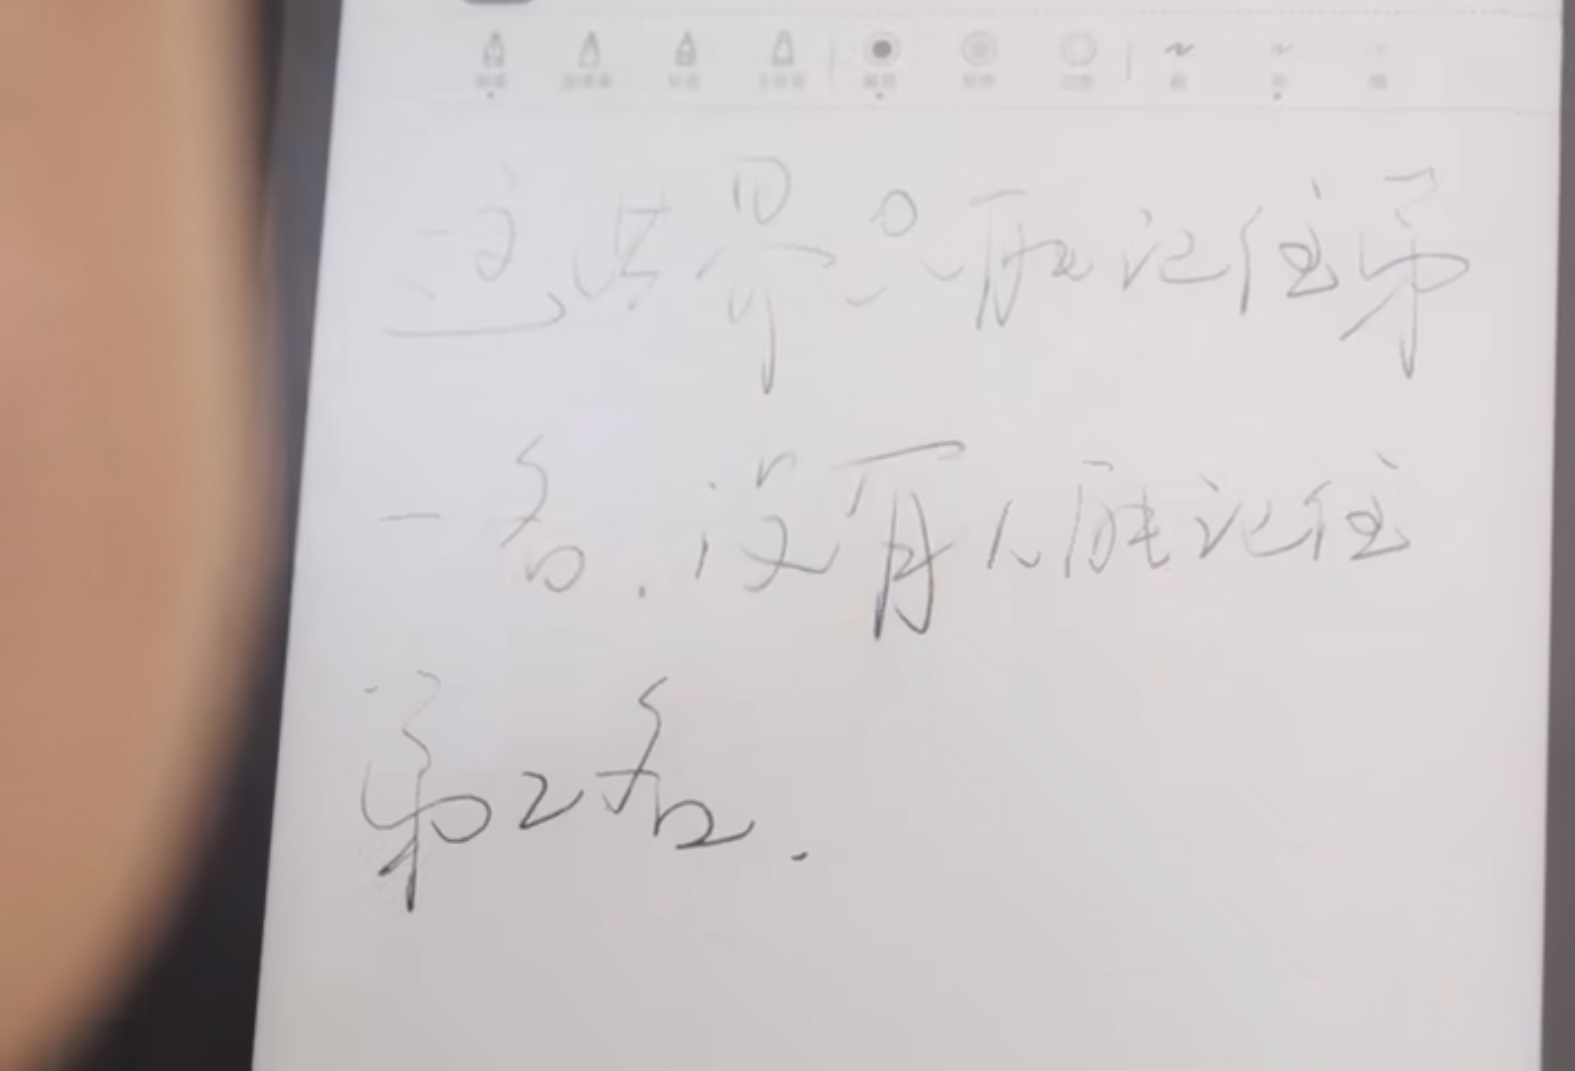 这世界只能记住第
一名.没有人能记住
第2名.